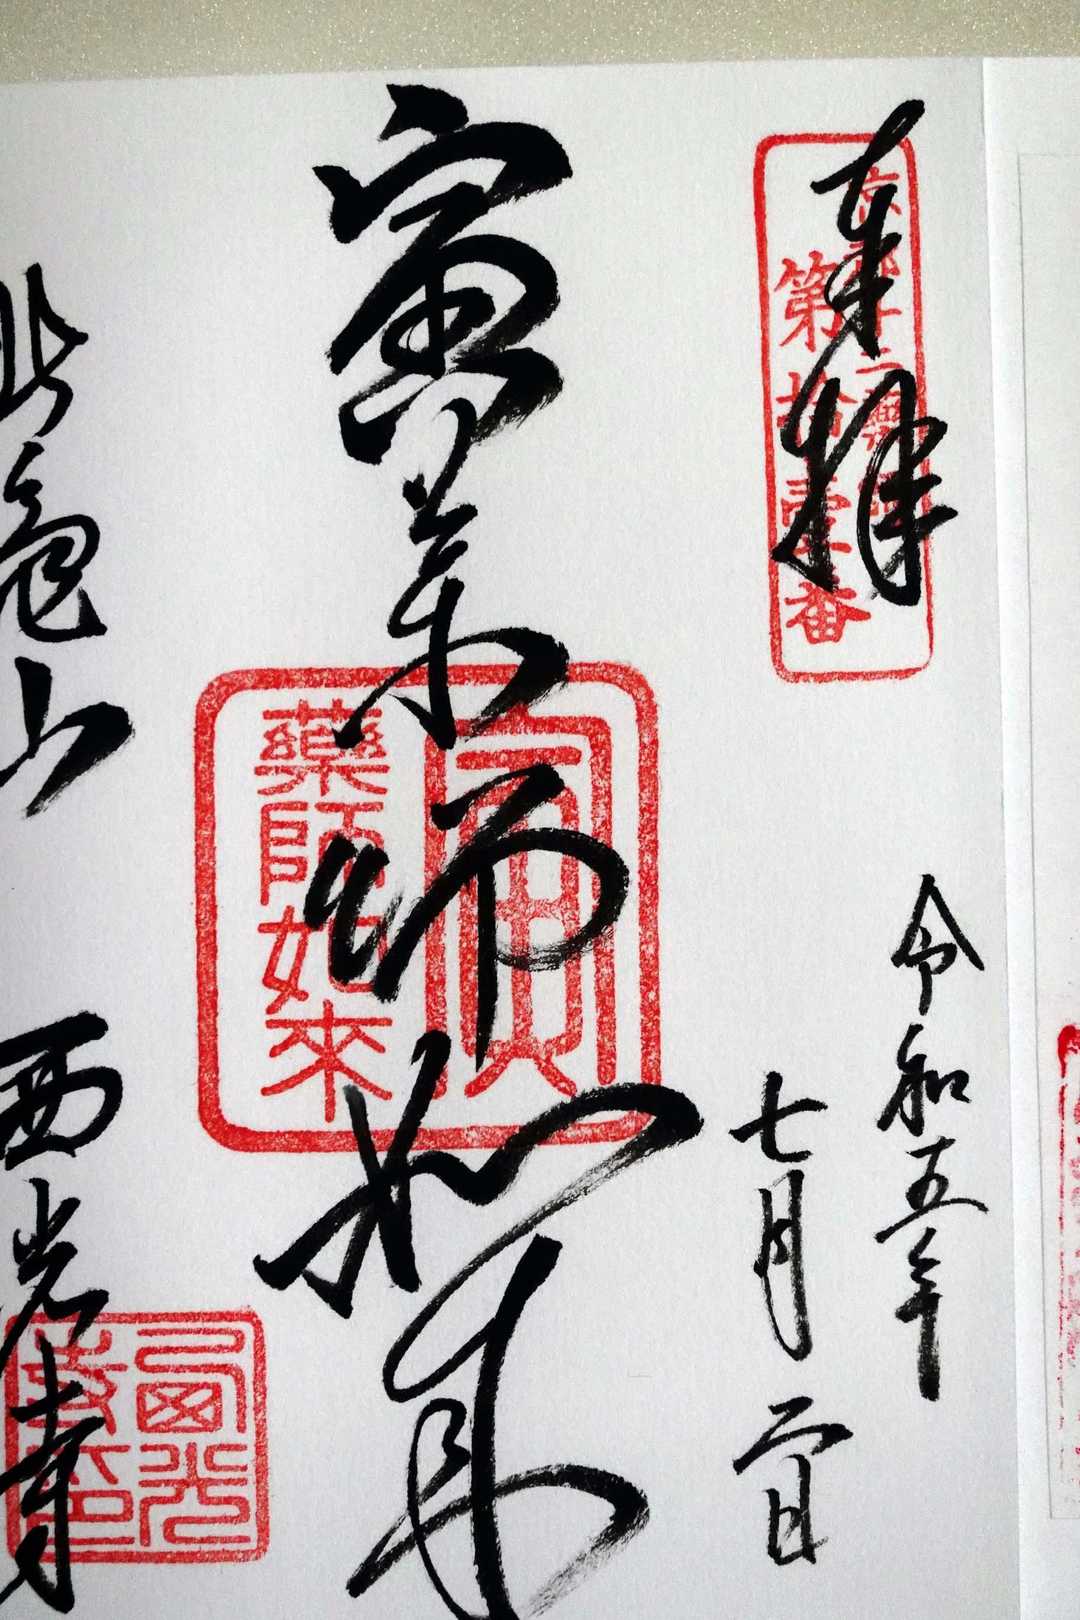 奉拝
京都十二薬師
第拾壱番
令和五年
七月二日
寅薬師如来
寅
藥師如來
此亀山 西光寺
西光
寺印